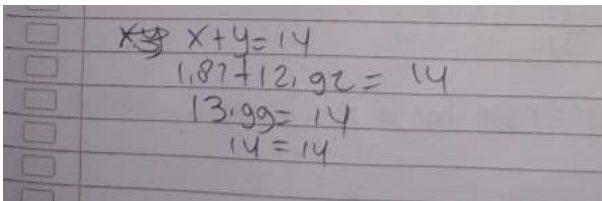 x+y=14
1.87+12.92= 14
13.99= 14
14=14